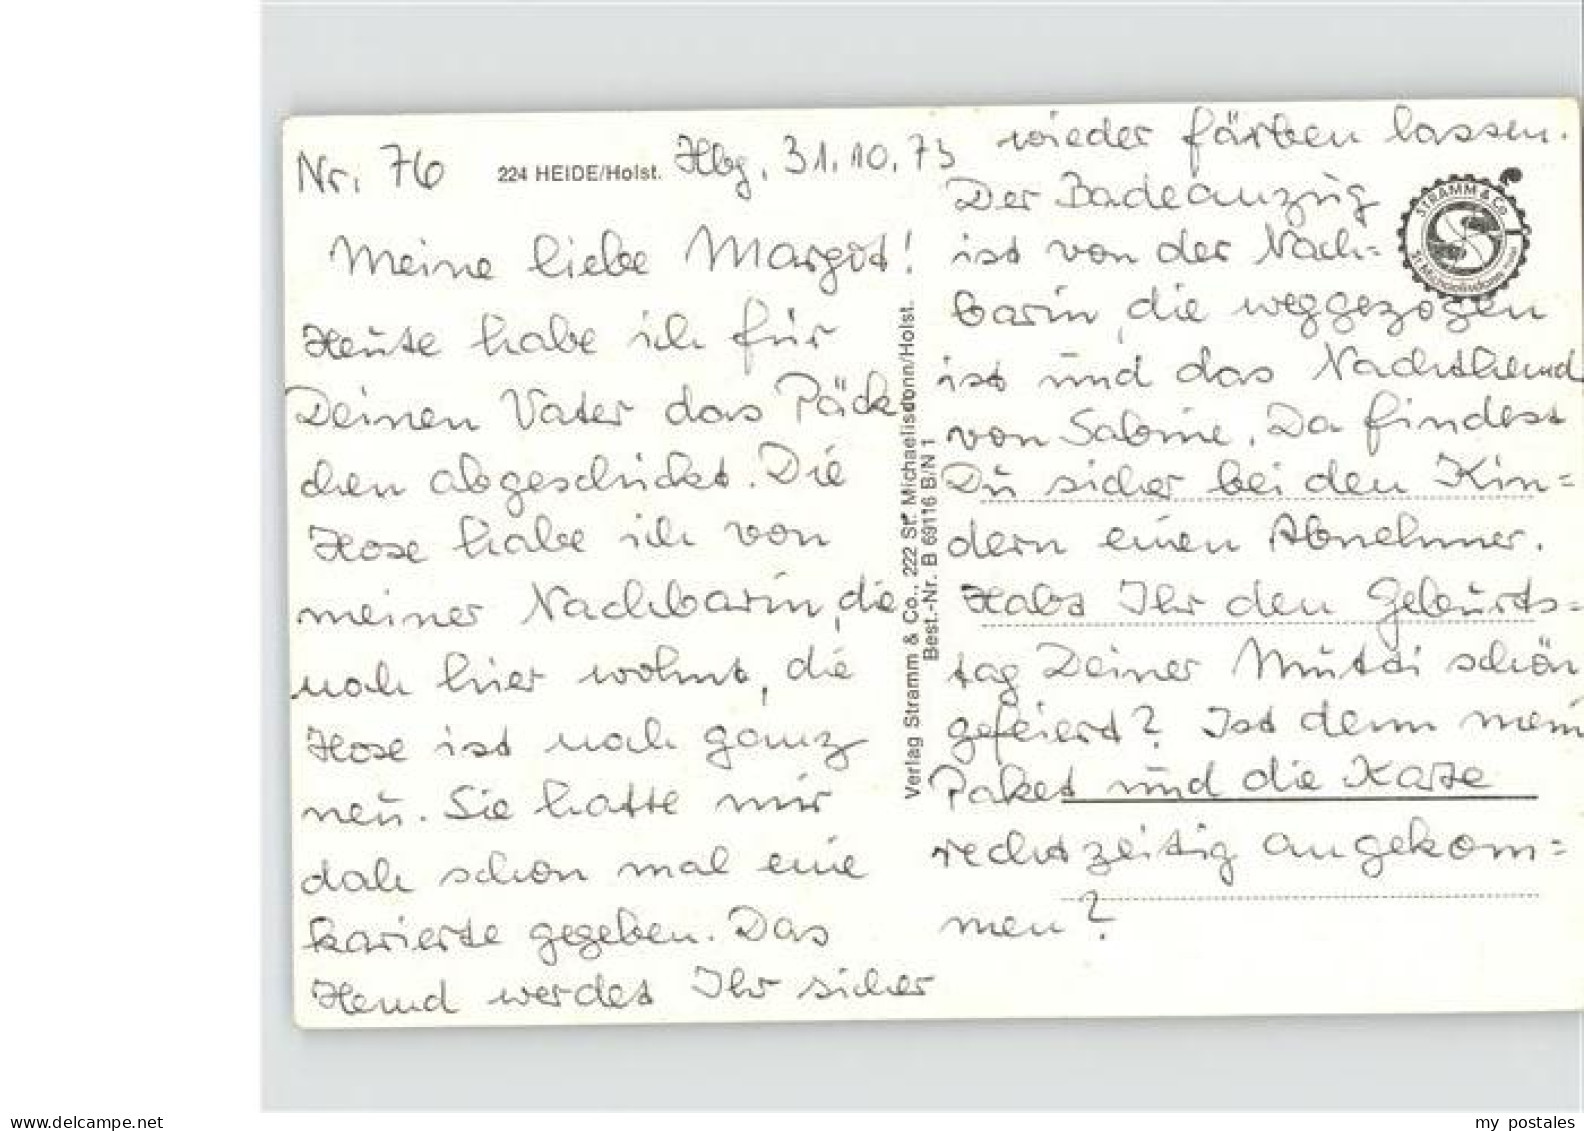 Nr. 76
224 HEIDE/Holst.
Hbg, 31.10.73
Meine liebe Margot!
Heute habe ich für
Deinen Vater das Päck
chen abgeschickt. Die
Hose habe ich von
meiner Nachbarin, die
noch hier wohnt, die
Hose ist noch ganz
neu. Sie hatte mir
doch schon mal eine
karierte gegeben. Das
Hemd werdet Ihr sicher
Verlag Stramm & Co., 222 St. Michaelisdonn/Holst.
Best.-Nr. B 69116 B/N 1
wieder färben lassen.
Der Badeanzug
ist von der Nach=
barin, die weggezogen
ist und das Nachthemd
von Sabine. Da findest
Du sicher bei den Kin=
dern einen Abnehmer.
Habt Ihr den Geburts=
tag Deiner Mutti schön
gefeiert? Ist denn mein
Paket und die Karte
rechtzeitig angekom=
men?
STRAMM & Co
St. Michaelisdonn
www.delcampe.net
my_postales